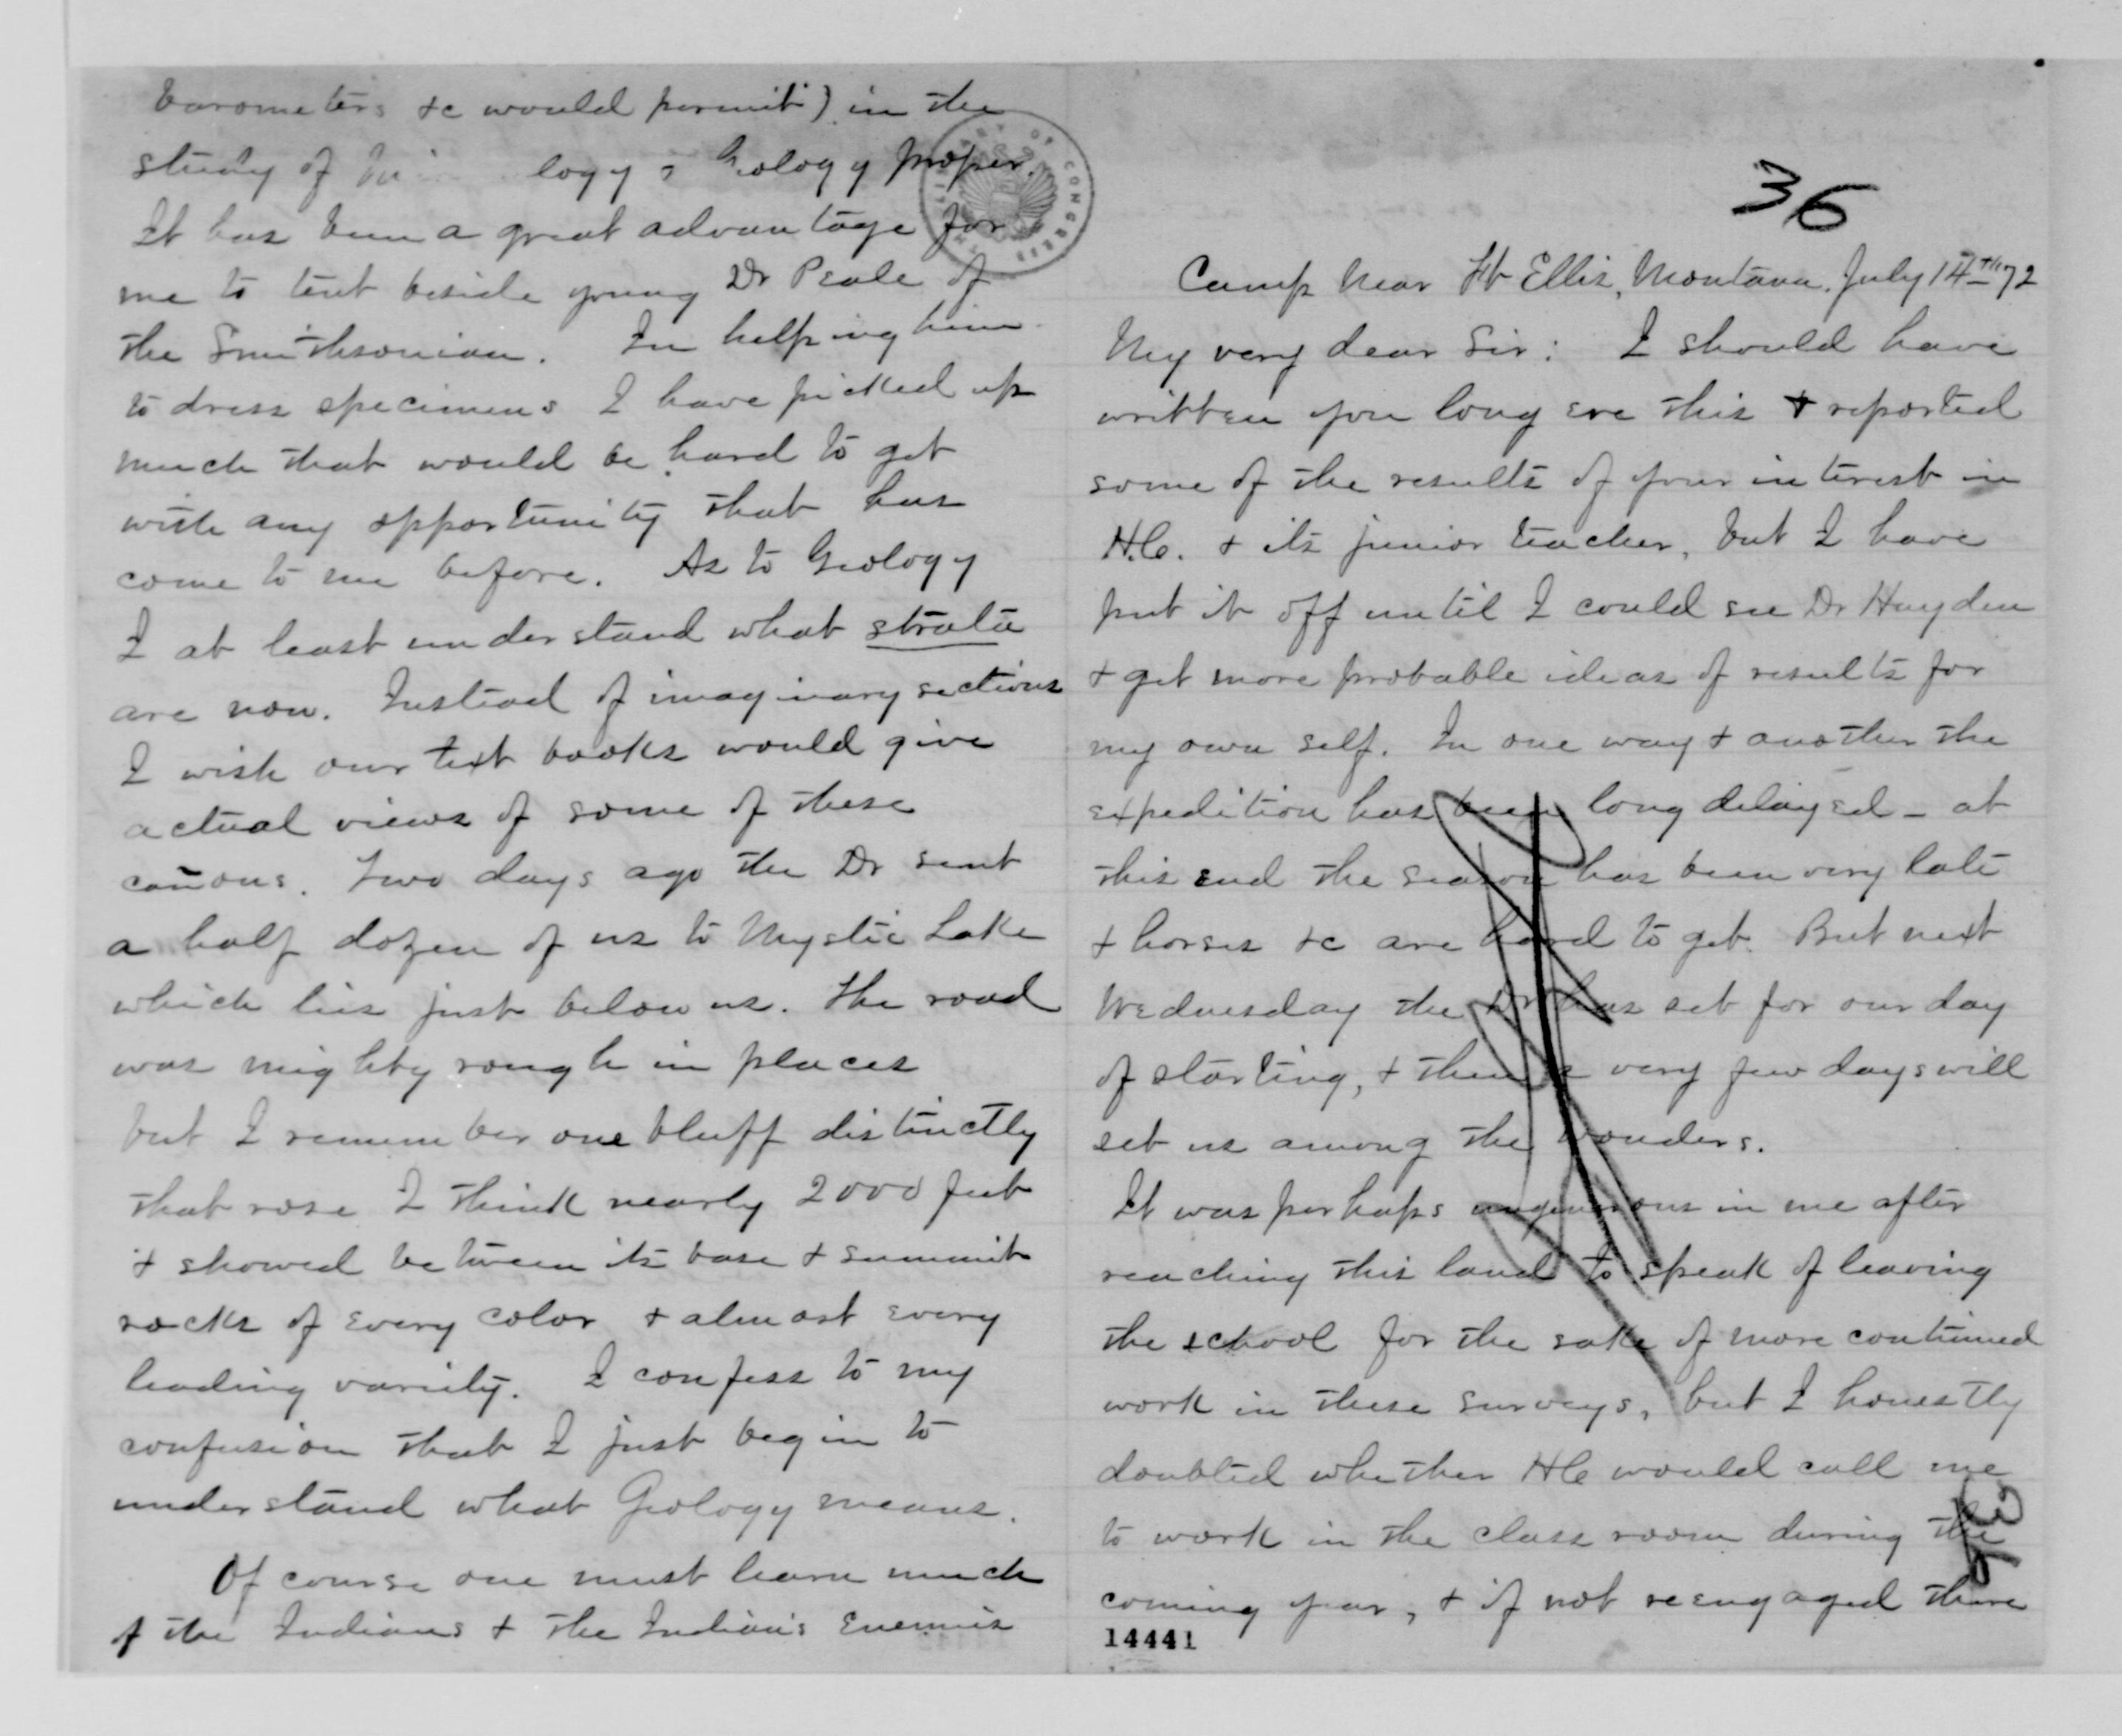 barometers &c would permit) in the
study of logy & Geology proper.
It has been a great advantage for
me to tent beside young Dr Peale of
the Smithsonian. In helping him
to dress specimens I have picked up
much that would be hard to get
with any opportunity that has
come to me before. As to Geology
I at least understand what strata
are now. Instead of imaginary sections
I wish our text books would give
actual views of some of these
cañons. Two days ago the Dr sent
a half dozen of us to Mystic Lake
which lies just below us. The road
was mighty rough in places
but I remember one bluff distinctly
that rose I think nearly 2000 feet
& showed between its base & summit
rocks of every color & almost every
leading variety. I confess to my
confusion that I just begin to
understand what Geology means.
Of course one must learn much
of the Indians & the Indian's Enemies
LIBRARY OF CONGRESS
36
Camp Near Ft Ellis, Montana, July 14th 72
My very dear Sir: I should have
written you long ere this & reported
some of the results of your interest in
H.C. & its junior teacher, but I have
put it off until I could see Dr Hayden
& get more probable ideas of results for
my own self. In one way & another the
expedition has been long delayed - at
this end the season has been very late
& horses &c are hard to get. But next
Wednesday the Dr has set for our day
of starting, & then a very few days will
set us among the wonders.
It was perhaps ungenerous in me after
reaching this land to speak of leaving
the school for the sake of more continued
work in these surveys, but I honestly
doubted whether HC would call me
to work in the class room during the
coming year, & if not reengaged there
14441